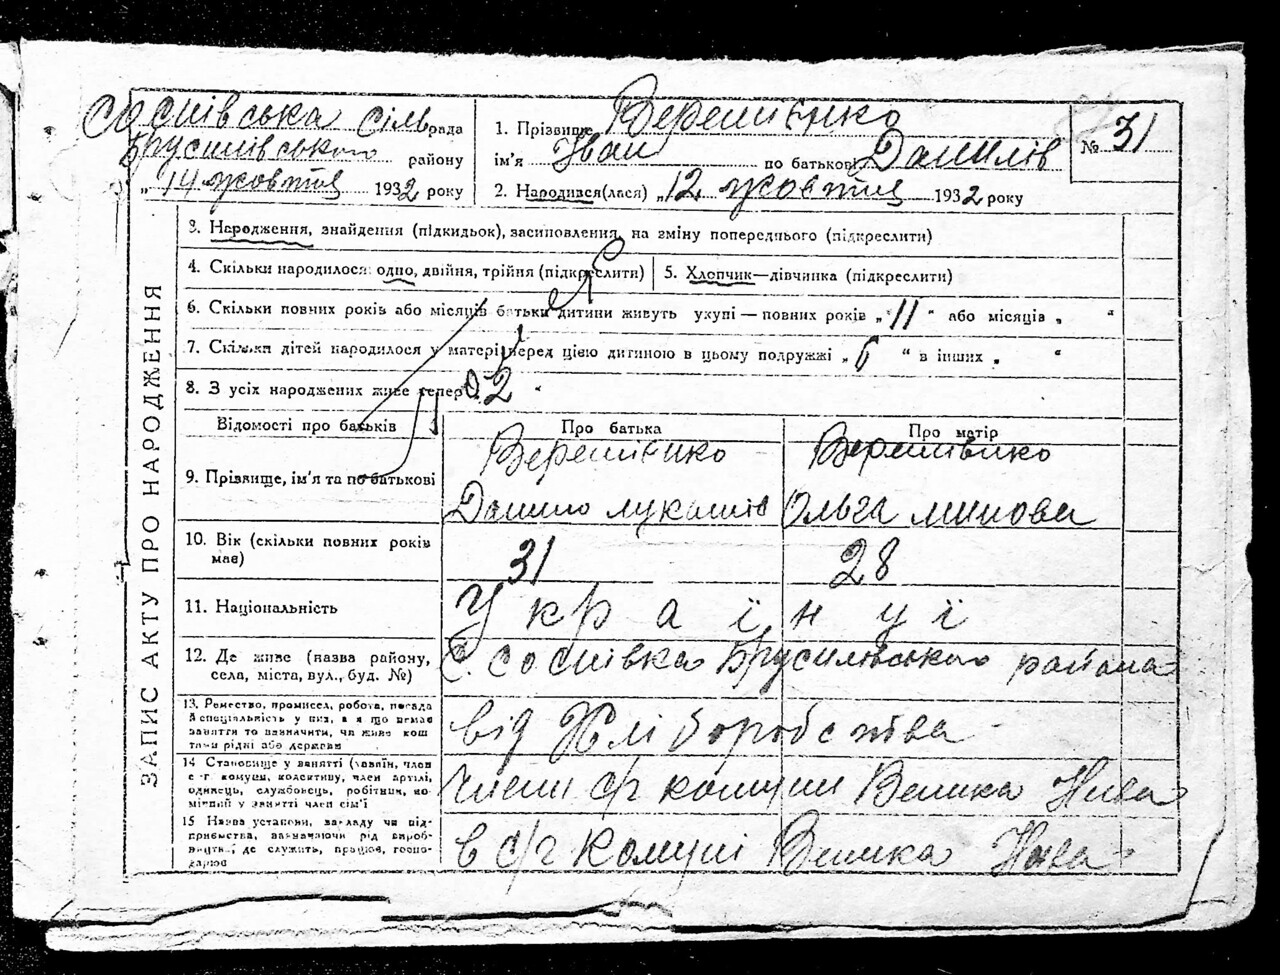 Соснівська сільрада
Брусилівського району
„14 жовтня 1932 року
1. Прізвище Веремієнко
ім'я Іван по батькові Данилів
2. Народився(лася) „12 жовтня 1932 року
№ 31
ЗАПИС АКТУ ПРО НАРОДЖЕННЯ
3. Народження, знайдення (підкидьок), засиновлення, на зміну попереднього (підкреслити)
4. Скільки народилося: одно, двійня, трійня (підкреслити)
5. Хлопчик—дівчинка (підкреслити)
6. Скільки повних років або місяців батьки дитини живуть укупі — повних років „11“ або місяців „ “
7. Скільки дітей народилося у матері перед цією дитиною в цьому подружжі „6“ в інших „ “
8. З усіх народжених живе тепер 2
Відомості про батьків
Про батька
Про матір
9. Прізвище, ім'я та по батькові
Веремієнко
Данило Лукашів
Веремієнко
Ольга Минова
10. Вік (скільки повних років
має)
31
28
11. Національність
Українці
12. Де живе (назва району,
села, міста, вул., буд. №)
с. Соснівка Брусилівського района
13. Ремество, промисел, робота, посада
й спеціяльність у них, а як що немає
заняття то зазначити, чи живе кош
тами рідні або держави
від Хліборобства
14 Становище у занятті (хазяїн, член
с-г. комуни, колективу, член артілі,
одинець, службовець, робітник, по
мічний у занятті член сім'ї
члени с/г комуни Велика Нива
15 Назва установи, закладу чи під-
приємства, зазначаючи рід вироб-
ництва, де служить, працює, госпо-
дарює
в с/г Комуні Велика Нива